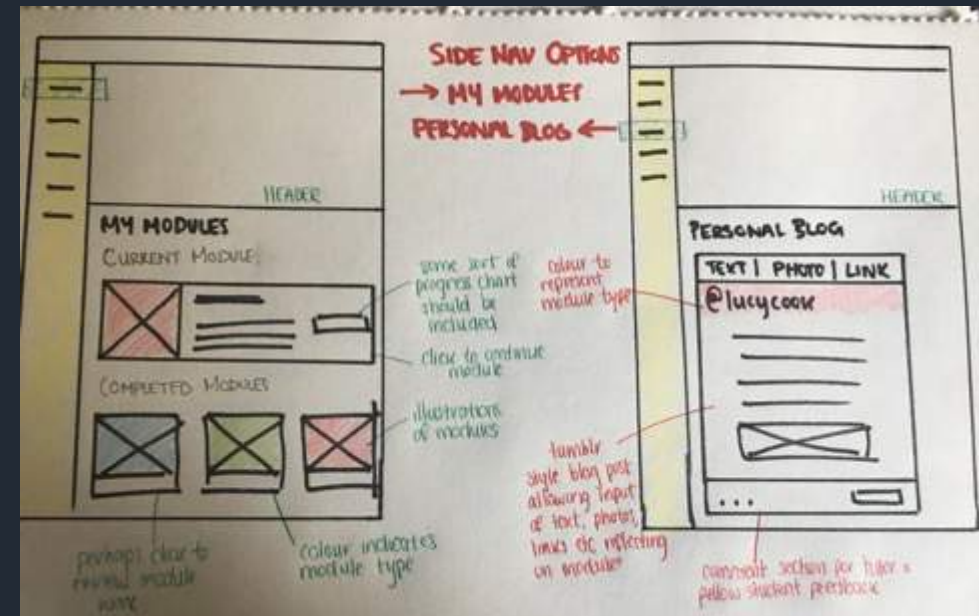 SIDE NAV OPTIONS
→ MY MODULES
PERSONAL BLOG ←
HEADER
MY MODULES
CURRENT MODULE
some sort of
progress chart
should be
included
click to continue
module
COMPLETED MODULES
illustrations
of modules
perhaps click to
review module
colour indicates
module type
HEADER
PERSONAL BLOG
TEXT | PHOTO | LINK
@lucycook
colour to
represent
module type
tumblr
style blog post
allowing input
of text, photos,
links etc reflecting
on module
comment section for tutor +
fellow student feedback